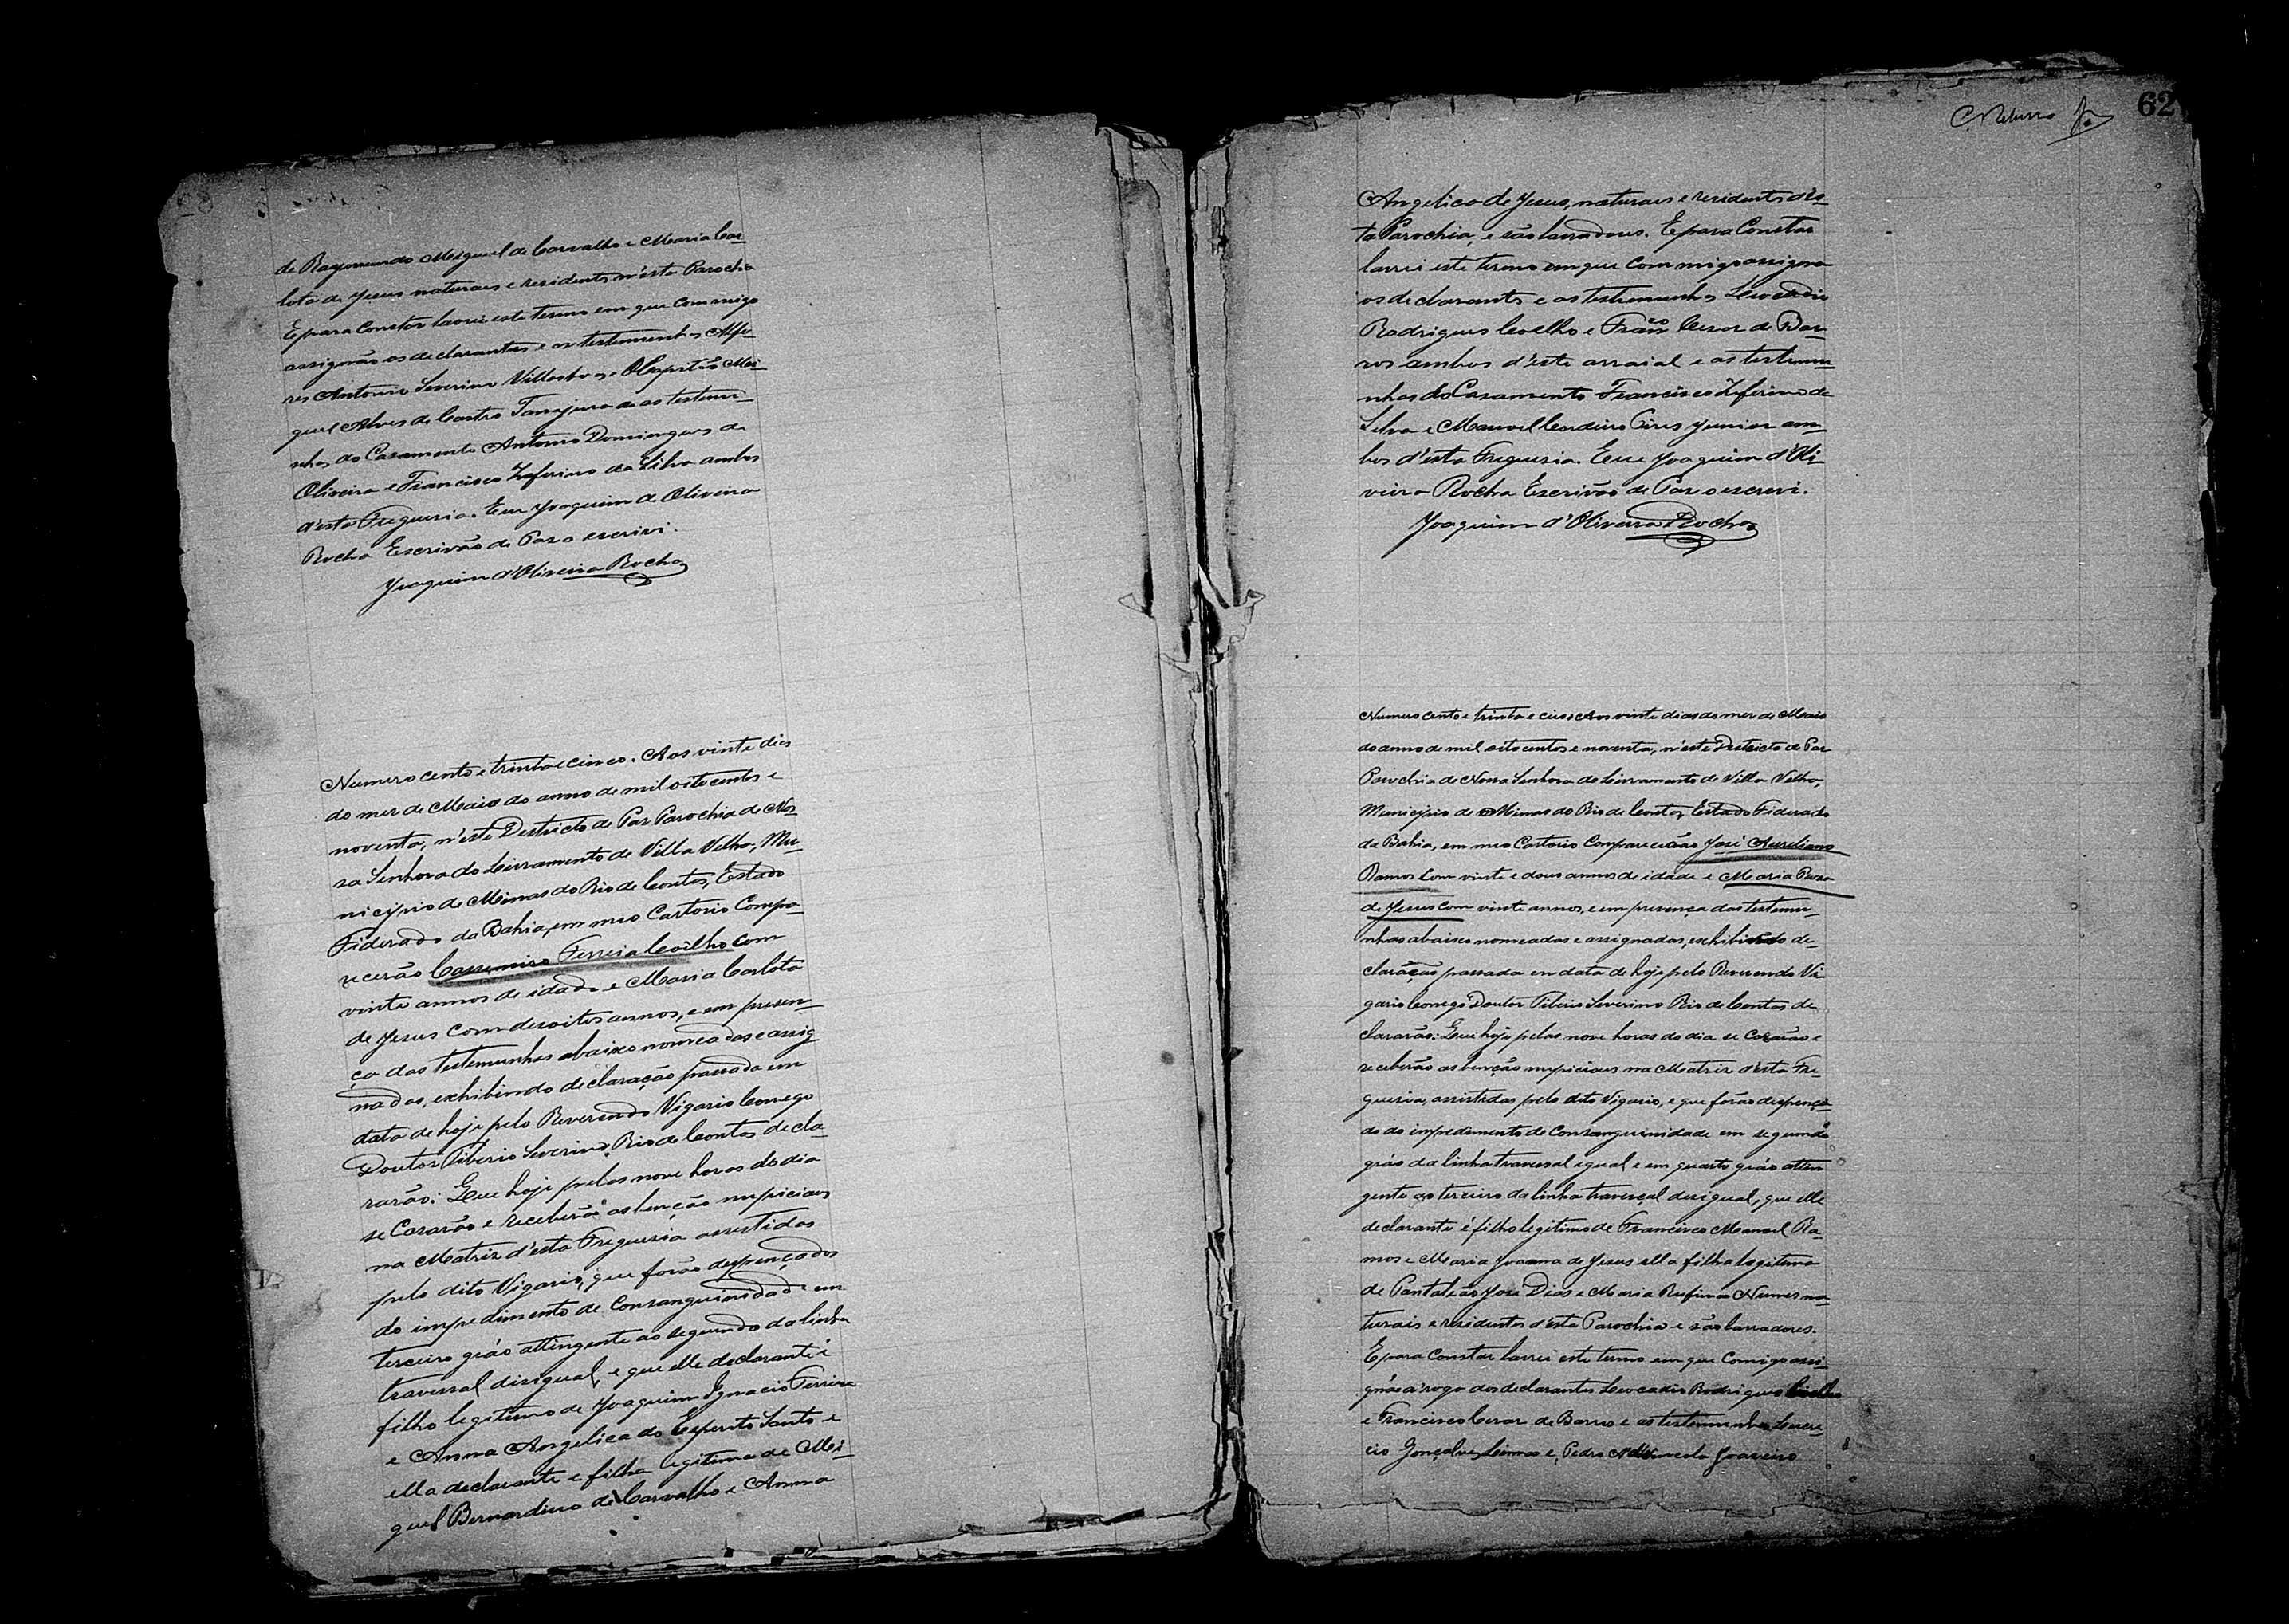 de Raymundo Misguel de Carvalho e Maria Car-
lota de Jesus naturaes e residentes n'esta Parochia
E para Constar lavrei este termo em que commigo
assignão os declarantes e as testemunhas Alfe-
res Antonio Severino Villasboas e Capitão Mei-
guel Alves de Castro Tanajura e as testemu-
nhas do Casamento Antonio Domingues de
Oliveira e Francisco Zeferino da Silva ambos
d'esta Freguesia. Eeu Joaquim de Oliveira
Rocha Escrivão de Paz o escrivi.
Joaquim d'Oliveira Rocha
Numero cento e trinta e cinco. Aos vinte dias
do mez de Maio do anno de mil oitocentos e
noventa, n'este Destricto de Paz Parochia de Nos-
sa Senhora do Livramento de Villa Velha, Mu-
nicipio de Minas do Rio de Contas, Estado
Fiderado da Bahia, em meo Cartorio Compa-
recerão Cassemiro Ferreia Coelho com
vinte annos de idade e Maria Carlota
de Jesus com desoitos annos, e em presen-
ça das testemunhas abaixo nomeadas e assig
nadas, exhibindo declaração passada em
data de hoje pelo Reverendo Vigario Conego
Doutor Tiberio Severino Rio de Contas decla-
rarão: Que hoje pelas nove horas do dia
se Casarão e receberão as benção nupiciaes
na Matriz d'esta Freguesia assistidos
pelo dito Vigario, que forão despençados
do impedimento de Consanguinidade em
terceiro gráo attingente ao segundo da linha
traversal disigual, e que elle declarante é
filho legitimo de Joaquim Ignacio Ferreira
e Anna Angelica do Esperito Santo e
ella declarante e filha legitima de Mei-
guel Bernardino de Carvalho e Anna
62
Angelica de Jesus, naturaes e residentes d'es-
ta Parochia, e são lavradores. E para Constar
lavrei este termo em que Commigo assigna
os declarantes e as testemunhas Leocadio
Rodrigues Coelho e Franco Cesar de Bar-
ros ambos d'este arraial e as testemu-
nhas do Casamento Francisco Zeferino da
Silva e Manoel Cordeiro Pires Junior am-
bos d'esta Freguesia. Eeu Joaquim d'Oli-
veira Rocha Escrivão de Paz o escrevi.
Joaquim d'Oliveira Rocha
Numero cento e trinta e Aos vinte dias do mez de Maio
do anno de mil oito centos e noventa, n'este Destricto de Paz
Parochia de Nossa Senhora do Livramento de Villa Velha,
Municipio de Minas do Rio de Contas, Estado Fiderado
da Bahia, em meo Cartorio Comparecerão José Aureliano
Ramos Com vinte e dous annos de idade e Maria Roza
de Jesus com vinte annos, e em presença das testemu-
nhas abaixo nomeadas e assignadas, exhibindo de-
claração passada em data de hoje pelo Reverendo Vi
gario Conego Doutor Tiberio Severino Rio de Contas de-
clararão: Que hoje pelas nove horas do dia se Casarão e
receberão as benção nupiciaes na Matriz d'esta Fre-
guesia, assistidas pelo dito Vigario, e que forão despença-
do do impedimento de Consanguinidade em segundo
gráo da linha traversal igual e em quarto gráo attin
gente ao terceiro da linha traverçal desigual, que elle
declarante é filho legitimo de Francisco Manoel Ra-
mos e Maria Joanna de Jesus ella filha legitima
de Pantaleão José Dias e Maria Rufina Nunes na-
turais e residentes d'esta Parochia e são lavradores.
E para Constar lavrei este termo em que Comigo assi-
gnão a rogo dos declarantes Leocadio Rodrigues Coelho
e Francisco Cesar de Barros e as testemunhas
Gonçalves e Pedro